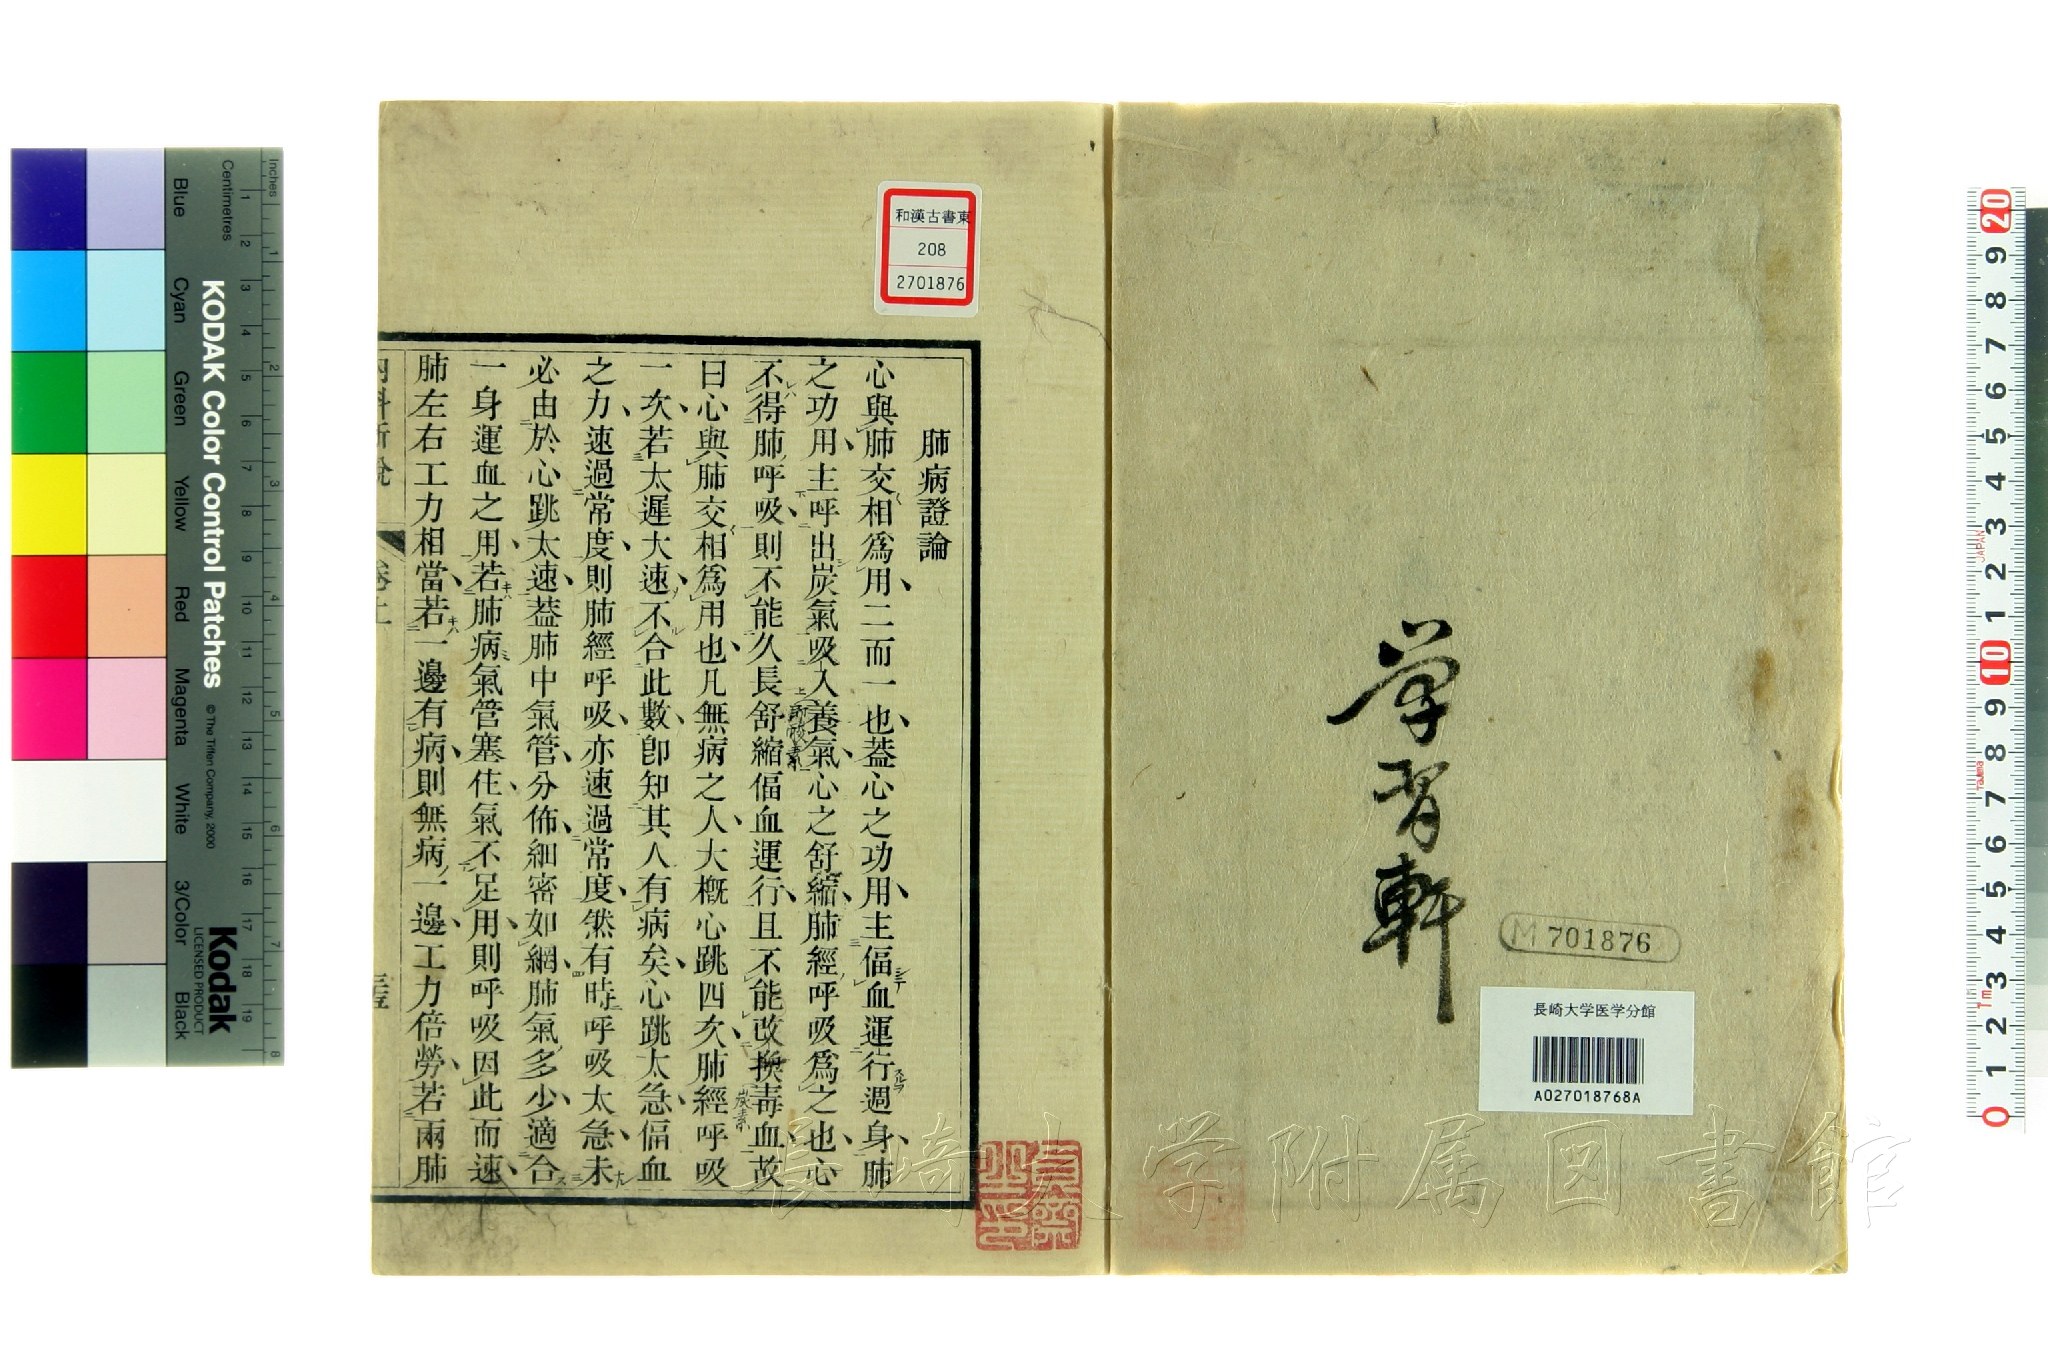 学習軒
M 701876
長崎大学医学分館
A027018768A
和漢古書東
208
2701876
肺病證論
心與肺交相爲用二而一也葢心之功用主偪血運行週身肺
之功用主呼出炭氣吸入養氣心之舒縮肺經呼吸爲之也心
不得肺呼吸則不能久長舒縮偪血運行且不能改換毒血故
曰心與肺交相爲用也凡無病之人大槪心跳四次肺經呼吸
一次若太遲大速不合此數卽知其人有病矣心跳太急偪血
之力速過常度則肺經呼吸亦速過常度然有時呼吸太急未
必由於心跳太速葢肺中氣管分佈細密如網肺氣多少適合
一身運血之用若肺病氣管塞住氣不足用則呼吸因此而速
肺左右工力相當若一邊有病則無病一邊工力倍勞若兩肺
內科新說
卷上
炭素
長崎大学附属図書館
KODAK Color Control Patches
© The Tiffen Company, 2000
Kodak
LICENSED PRODUCT
Inches
Centimetres
1 2 3 4 5 6 7 8 9 10 11 12 13 14 15 16 17 18 19
1 2 3 4 5 6 7 8
Blue
Cyan
Green
Yellow
Red
Magenta
White
3/Color
Black
20 9 8 7 6 5 4 3 2 1 10 9 8 7 6 5 4 3 2 1 0
JAPAN
Tajima
Tm